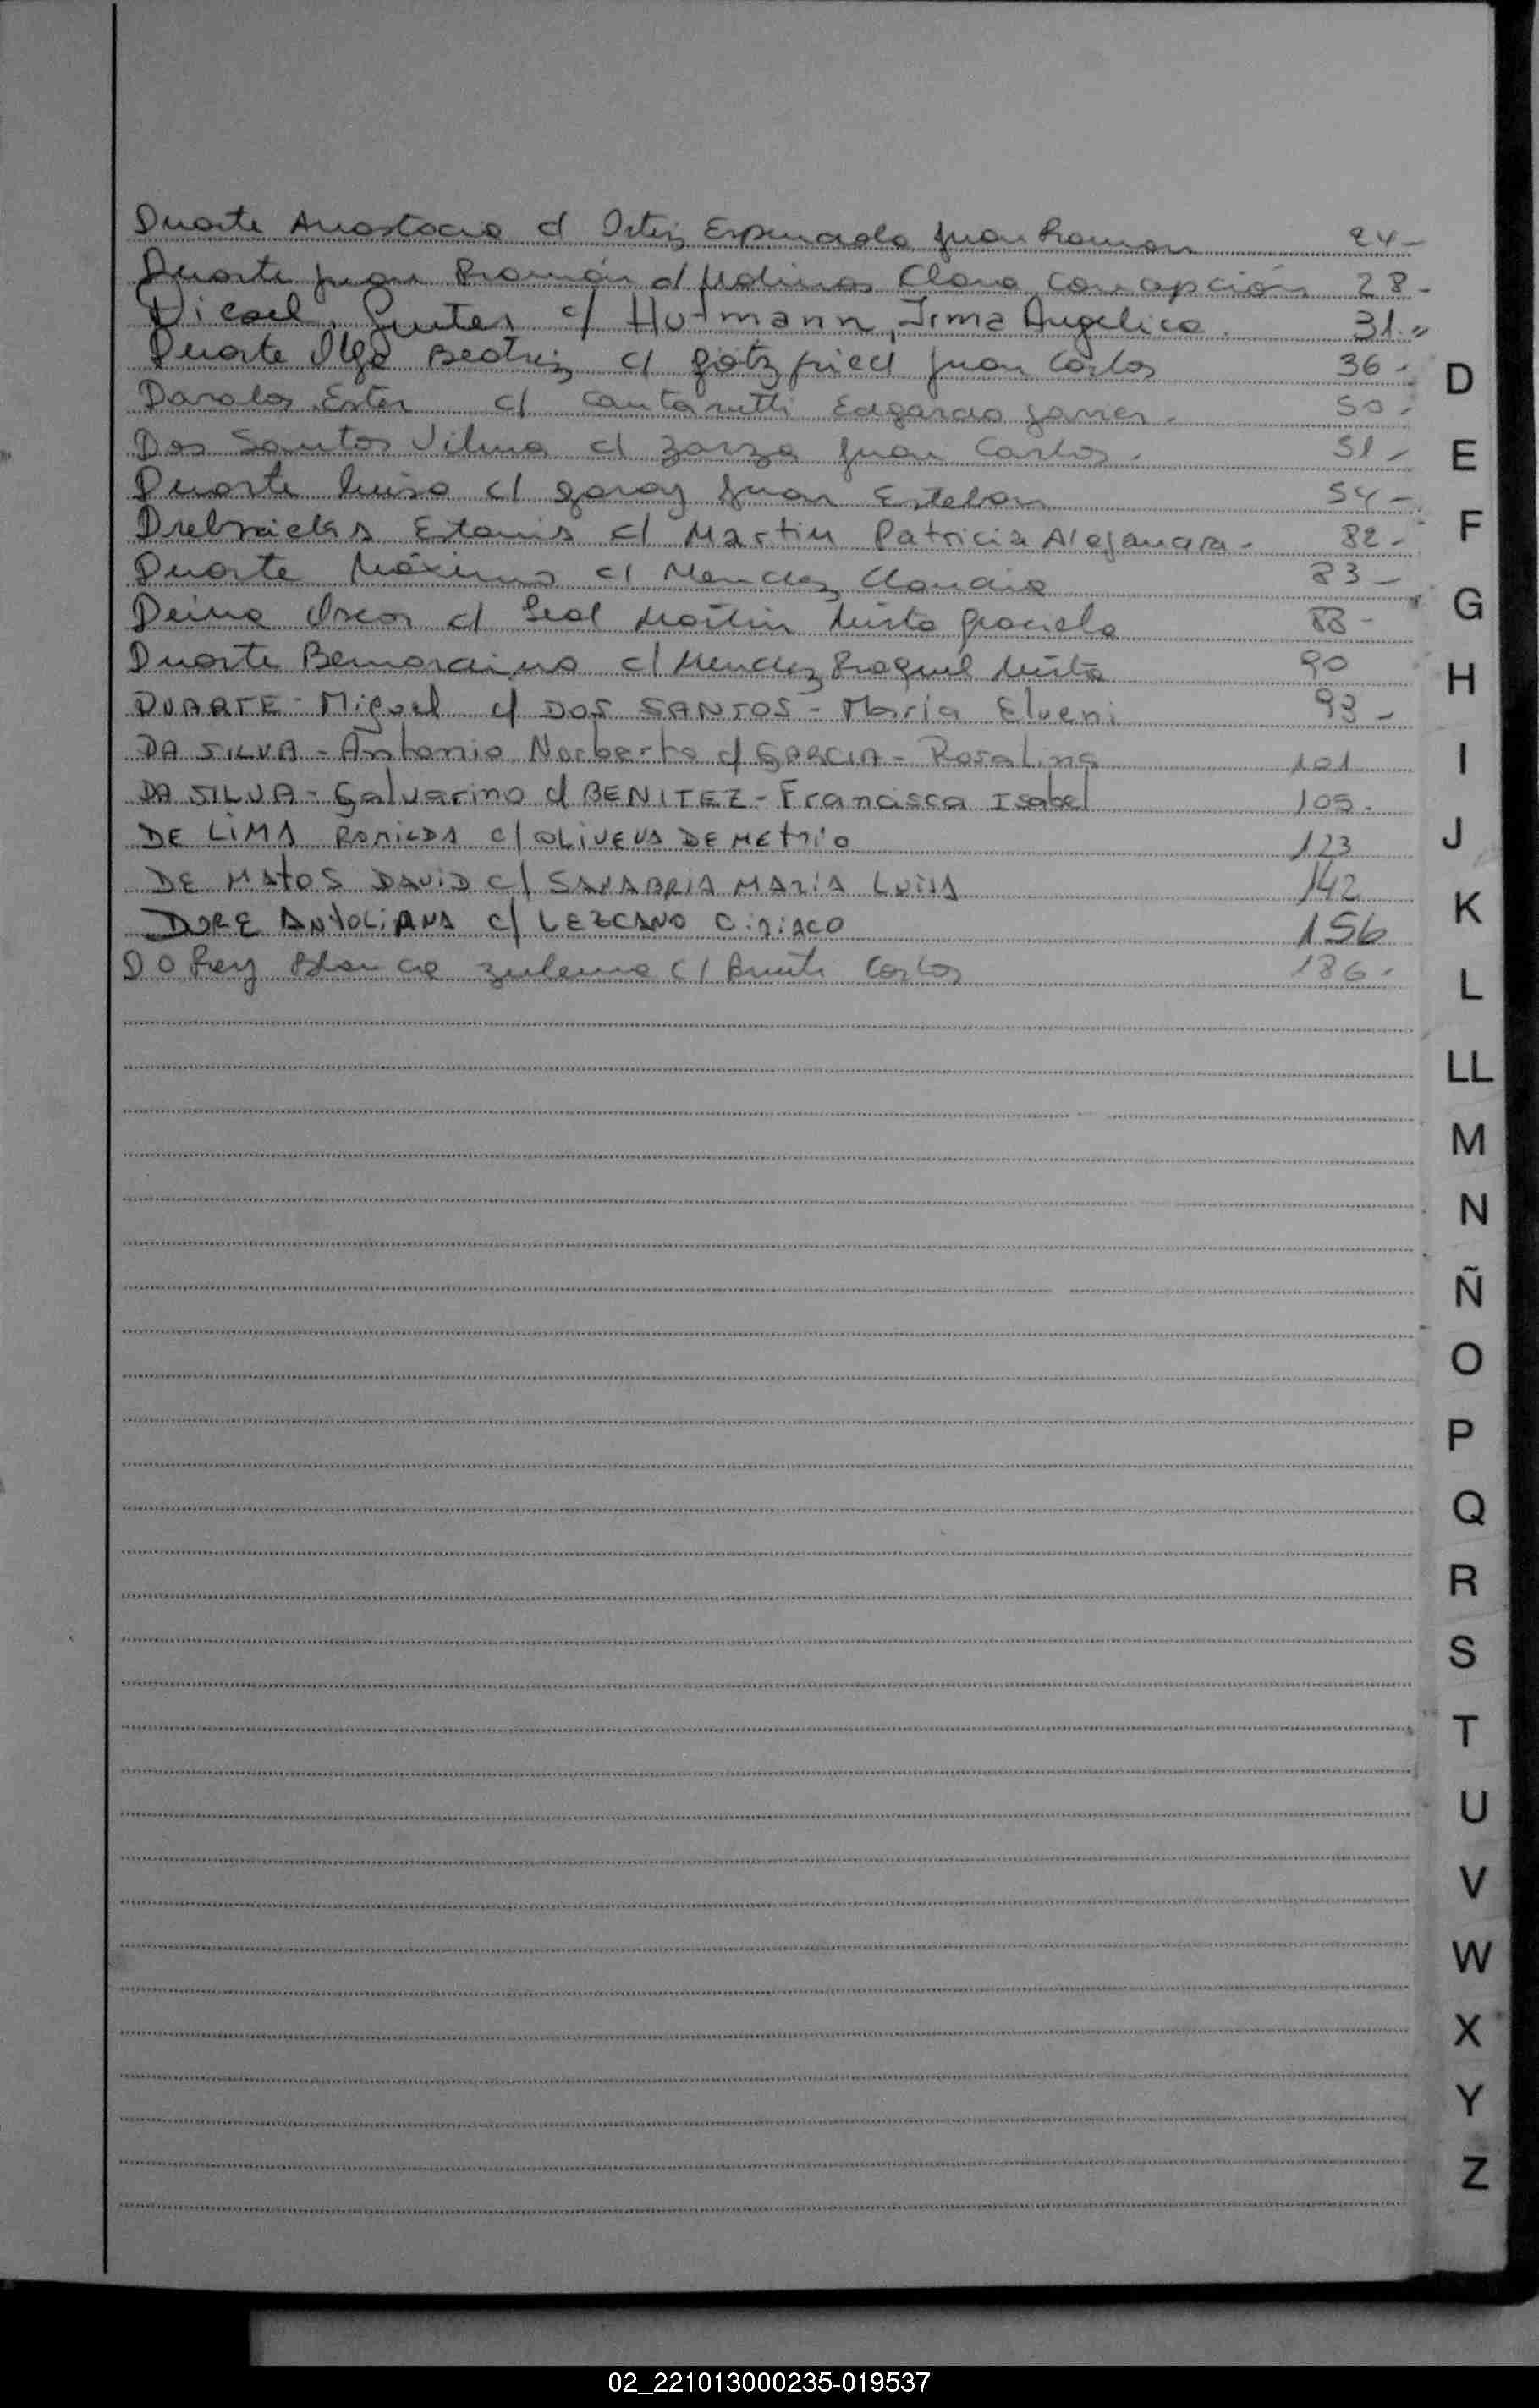 Duarte Anastacia c/ Ortiz Esperanciola Juan Ramon 24-
Duarte Juan Ramón c/ Molinas Clara Concepción 28-
Dicael, Gunter c/ Hutmann, Irma Angelica. 31.,,
Duarte Olga Beatriz c/ Götzfried Juan Carlos 36-
Davalos Ester c/ Cantarutti Edgardo Javier. 50-
Dos Santos Vilma c/ Zarza Juan Carlos. 51-
Duarte Luisa c/ Garay Juan Esteban 54-
Estanis c/ Martin Patricia Alejandra- 82-
Duarte Máximo c/ Mendez Claudia 83-
Deina Oscar c/ Leal Martin Mirta Graciela 88-
Duarte Bernardino c/ Mendez Raquel Mirta 90
DUARTE - Miguel c/ DOS SANTOS - María Elveni 93-
DA SILVA - Antonio Norberto c/ GARCIA - Rosalina 101
DA SILVA - Galvarino c/ BENITEZ - Francisca Isabel 105.
DE LIMA ROMILDA c/ OLIVEUA DEMETRIO 123
DE MATOS DAVID c/ SANABRIA MARIA LUISA 142
DORE ANTOLIANA c/ LEZCANO CIRIACO 156
Blanca Zulema c/ Carlos 186-
D
E
F
G
H
I
J
K
L
LL
M
N
Ñ
O
P
Q
R
S
T
U
V
W
X
Y
Z
02_221013000235-019537